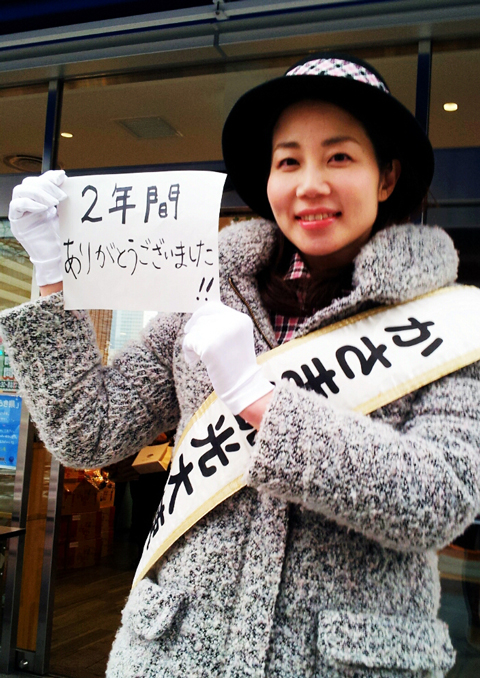 2年間
ありがとうございました
!!
かさま
光大